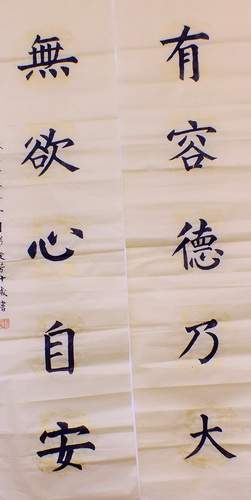 有容德乃大
無欲心自安